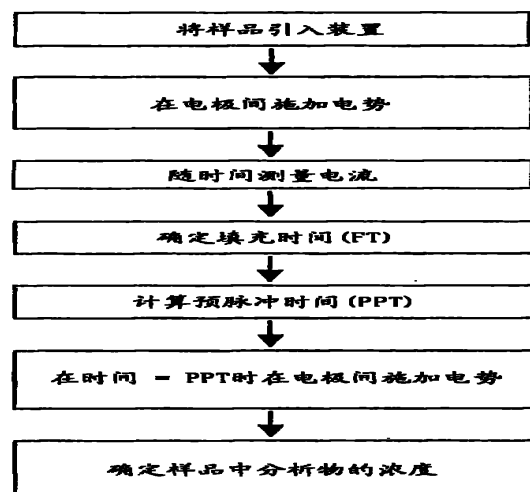 将样品引入装置
在电极间施加电势
随时间测量电流
确定填充时间(FT)
计算预脉冲时间(PPT)
在时间 = PPT时在电极间施加电势
确定样品中分析物的浓度